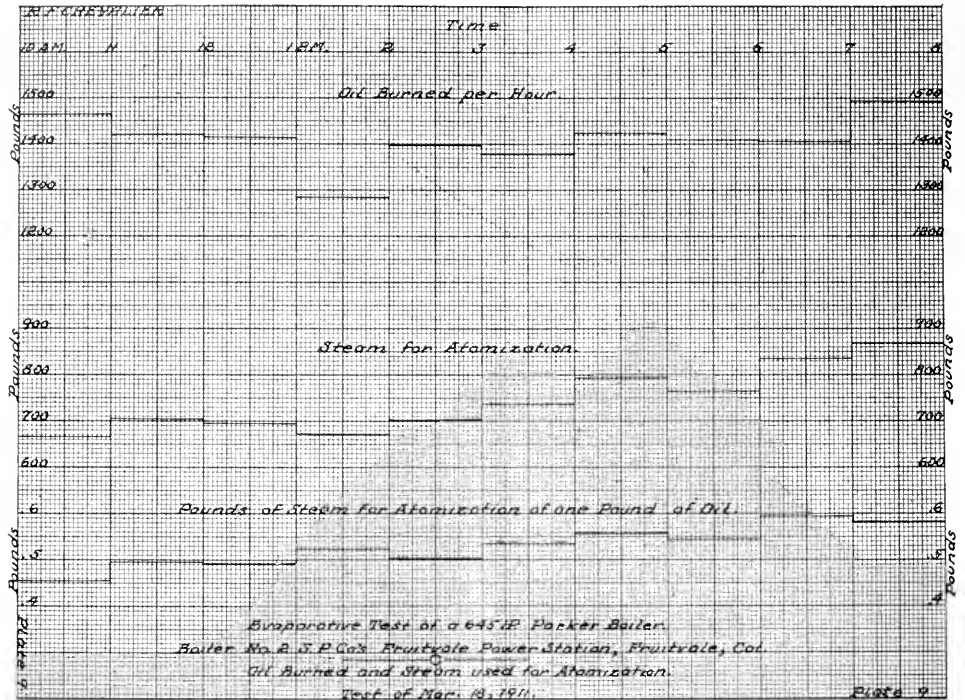 R F CHEVALIER
Time
10 AM. 11 12 1 P.M. 2 3 4 5 6 7 8
Oil Burned per Hour.
1500 1500
Pounds 1400 1400 Pounds
1300 1300
1200 1200
900 900
Steam for Atomization.
Pounds 800 800 Pounds
700 700
600 600
Pounds of Steam for Atomization of one Pound of Oil.
.6 .6
Pounds .5 .5 Pounds
.4 .4
Evaporative Test of a 645 HP Parker Boiler.
Boiler No. 2 S. P. Co's Fruitvale Power Station, Fruitvale, Cal.
Oil Burned and Steam used for Atomization.
Test of Mar. 18, 1911.
Plate 9
Plate 9